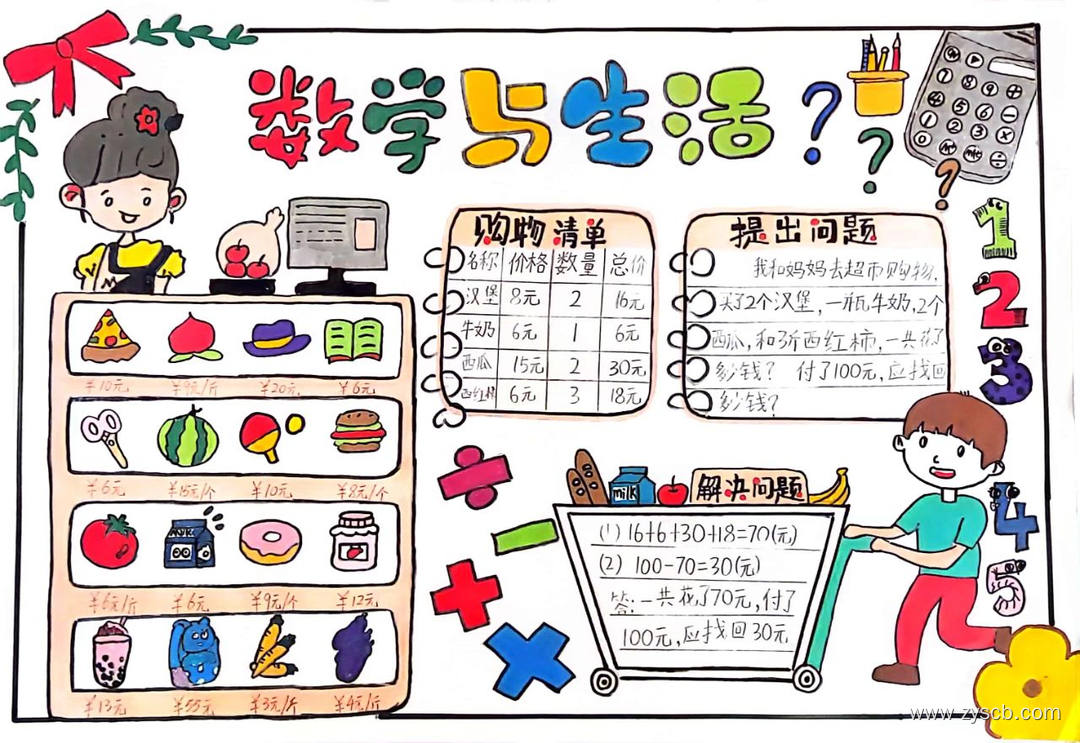 数学与生活
购物清单
名称 价格 数量 总价
汉堡 8元 2 16元
牛奶 6元 1 6元
西瓜 15元 2 30元
西红柿 6元 3 18元
提出问题
我和妈妈去超市购物,
买了2个汉堡,一瓶牛奶,2个
西瓜,和3斤西红柿,一共花了
多少钱? 付了100元,应找回
多少钱?
¥10元 ¥9元/斤 ¥20元 ¥6元
¥6元 ¥15元/个 ¥10元 ¥8元/个
MILK
¥6元/斤 ¥6元 ¥9元/个 ¥12元
¥13元 ¥55元 ¥3元/斤 ¥4元/斤
milk
解决问题
(1) 16+6+30+18=70(元)
(2) 100-70=30(元)
答:一共花了70元,付了
100元,应找回30元
7 8 9 +
4 5 6 -
1 2 3 ×
0 ÷
1
2
3
4
5
www.zyscb.com